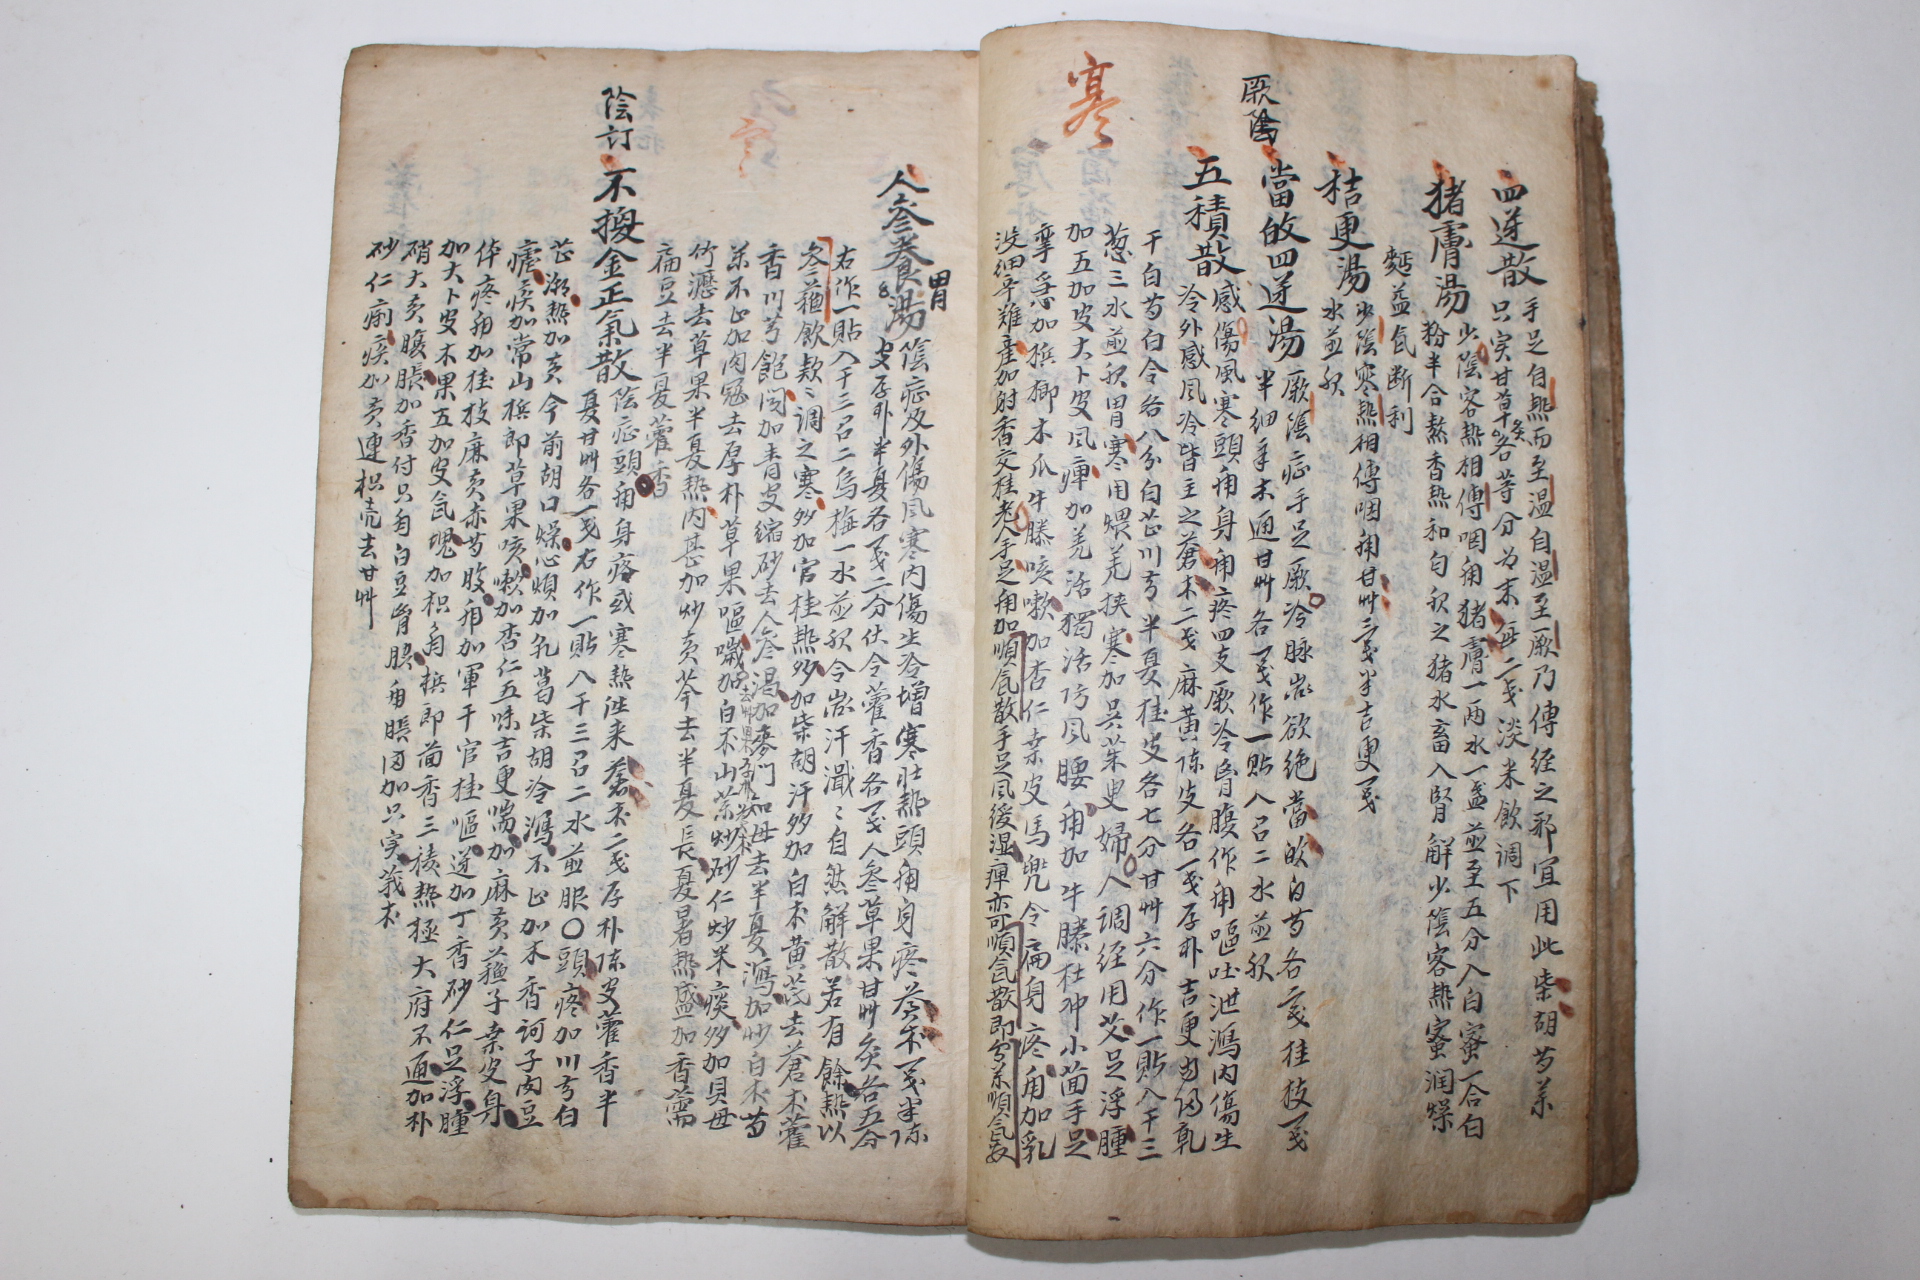 四逆散 手足自熱而至温自温至厥乃傳経之邪宜用此柴胡芍薬
只实甘草炙各等分为末每二戔淡米飲調下
猪膚湯 少隂客熱相傳咽痛猪膚一两水一盞並至五分入白蜜一合白
粉半合熬香熱和匀服之猪水畜入腎解少隂客熱蜜润燥
麪益氣断利
桔更湯 少隂寒熱相傳咽痛甘艸三戔半吉更戔
水並服
厥隂
當的四逆湯 厥隂症手足厥冷脉欲绝當的白芍各二戔桂枝戔
半細辛木通甘艸各戔作一貼入召二水並服
寒
五積散 感傷風寒頭痛身痛疼四支厥冷胷腹作痛嘔吐泄瀉内傷生
冷外感風冷皆主之蒼朮二戔麻黄陈皮各一戔厚朴吉更当的乹
干白芍白令各八分白芷川芎半夏桂皮各七分甘艸六分作一貼入干三
葱三水並服胃寒用煨羌挟寒加吴茱臾婦人調経用艾足浮腫
加五加皮大卜皮風痺加羌活獨活防風腰痛加牛膝杜冲小茴手足
攣急加槟榔木爪牛膝咳嗽加杏仁桒皮馬兜令扁身疼痛加乳
没細辛難産加射香交桂老人手足痛加順氣散手足風後湿痺亦可順氣散即台薬順氣散
人参養胃湯 隂症及外傷風寒内傷生冷增寒壮熱頭痛身疼蒼朮戔半陈
皮厚卟半夏各戔二分伏令藿香各戔人参草果甘艸炙各五分
右作一貼入干三召二烏梅一水並服令汗濈〻自然解散若有餘熱以
参蘓飲款〻調之寒多加官桂熱多加柴胡汗多加白朮黄茋去蒼朮藿
香川芎飽闷加青皮縮砂去人参渴加麥門知母去半夏瀉加炒白朮芍
薬不止加肉寇去厚朴草果嘔噦加白朮山薬炒砂仁炒米痰多加貝母
竹瀝去草果半夏熱内甚加炒黄芩去半夏長夏暑熱盛加香薷
扁豆去半夏藿香
隂訂
不換金正氣散 隂症頭痛身疼或寒熱往来蒼朮二戔厚朴陈皮藿香半
夏甘艸各一戔右作一貼入干三召二水並服○頭疼加川芎白
芷潮熱加黄今前胡口燥心煩加乳葛柴胡冷瀉不止加木香訶子肉豆
瘧痰加常山槟郎草果咳嗽加杏仁五味吉更喘加麻黄蘓子桒皮身
体疼痛加桂枝麻黄赤芍腹痛加軍干官桂嘔逆加丁香砂仁足浮腫
加大卜皮木果五加皮氣塊加枳角槟郎茴香三稜熱極大府不通加朴
硝大黄腹脹加香付只角白豆胷膈痛脹因加只实莪朮
砂仁痢痰加黄連枳壳去甘艸